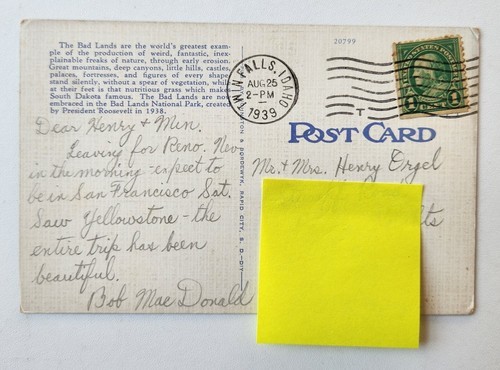 The Bad Lands are the world's greatest exam-
ple of the production of weird, fantastic, inex-
plainable freaks of nature, through early erosion.
Great mountains, deep canyons, little hills, castles,
palaces, fortresses, and figures of every shape
stand silently, without a spear of vegetation, while
at their feet is that nutritious grass which make
South Dakota famous. The Bad Lands are now
embraced in the Bad Lands National Park, created
by President Roosevelt in 1938.
20799
TWIN FALLS, IDAHO
AUG 25
2-PM
1939
T
1 1
POST CARD
Dear Henry & Min.
Leaving for Reno. Nev
in the morning - expect to
be in San Francisco Sat.
Saw Yellowstone - the
entire trip has been
beautiful.
Bob MacDonald
Mr. & Mrs. Henry Orgel
RAPID CITY, S. D.